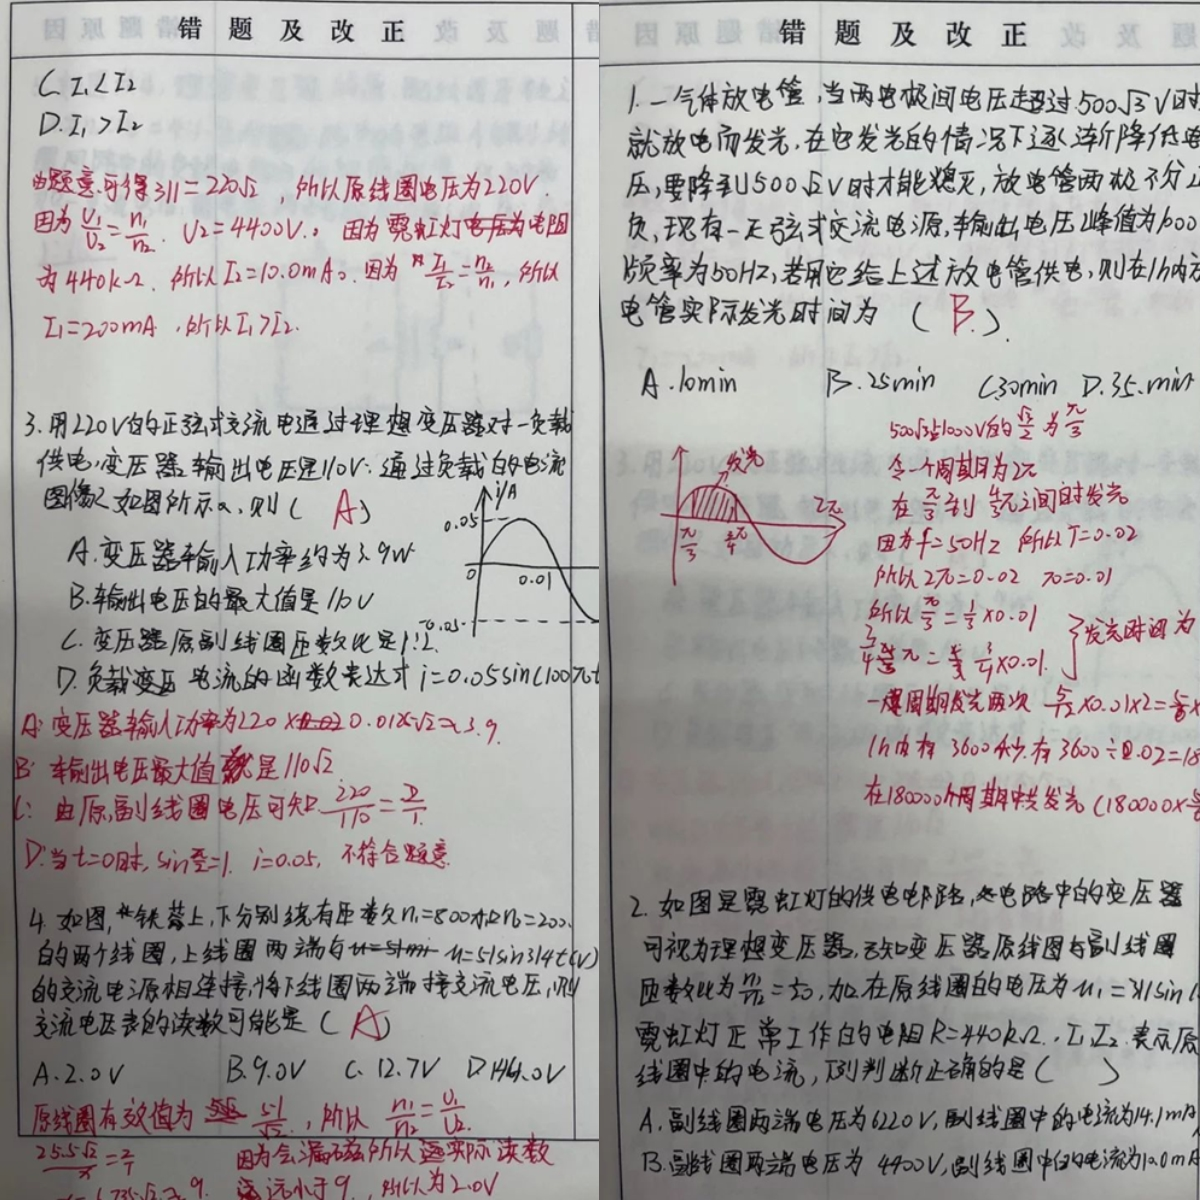 错题及改正
C. I₁<I₂
D. I₁>I₂
由题意可得311=220√2，所以原线圈电压为220V.
因为 U₁/U₂=n₁/n₂. U₂=4400V.。因为霓虹灯电阻
为440kΩ. 所以I₂=10.0mA。因为 I₁/I₂=n₂/n₁，所以
I₁=200mA，所以I₁>I₂.
3.用220V的正弦式交流电通过理想变压器对一负载
供电，变压器输出电压是110V.通过负载的电流
图像如图所示，则（ A ）
i/A
0.05
0
0.01
-0.05
A.变压器输入功率约为3.9W
B.输出电压的最大值是110V
C.变压器原副线圈匝数比是1:2
D.负载 电流的函数表达式 i=0.05sin(100πt
A: 变压器输入功率为220× 0.01×√2≈3.9.
B: 输出电压最大值 是110√2
C: 由原,副线圈电压可知 220/110=2/1
D:当t=0时, =1. i=0.05, 不符合题意
4.如图, 铁芯上,下分别绕有匝数n₁=800和n₂=200.
的两个线圈，上线圈两端与 u=51sin314t(V)
的交流电源相连接,将下线圈两端接交流电压,则
交流电压表的读数可能是（ A ）
A.2.0V B.9.0V C.12.7V D.144.0V
原线圈有效值为 51/√2，所以 n₁/n₂=U₁/U₂
25.5√2/x=2/1 因为会漏磁所以 实际读数
9. 远小于9，所以为2.0V
错题及改正
1.一气体放电管,当两电极间电压超过500√3V时
就放电而发光,在它发光的情况下逐渐降低电
压,要降到500√2V时才能熄灭,放电管两极不分正
负,现有一正弦式交流电源,输出电压峰值为1000
频率为50HZ,若用它给上述放电管供电,则在1h内放
电管实际发光时间为（ B. ）.
A.10min B.25min C30min D.35.min
500√3是1000V的√3/2 为π/3
令一个周期为2π
发光
π/3
2π
在π/3到 π之间时发光
因为f=50HZ 所以T=0.02
所以2π=0.02 π=0.01
所以π/3=1/3×0.01
3/4π= 3/4×0.01.
发光时间为
一周期发光两次 5/12×0.01×2=5/6×
1h内有3600秒.有3600÷0.02=18
在180000个周期中共发光(180000×5/6
2.如图是霓虹灯的供电电路,电路中的变压器
可视为理想变压器,已知变压器原线圈与副线圈
匝数比为n₁/n₂=1/20,加在原线圈的电压为u₁=311sin
霓虹灯正常工作的电阻R=440kΩ.,I₁I₂.表示原
线圈中的电流,下列判断正确的是（ ）
A.副线圈两端电压为6220V,副线圈中的电流为14.1mA
B.副线圈两端电压为4400V,副线圈中的电流为10.0mA